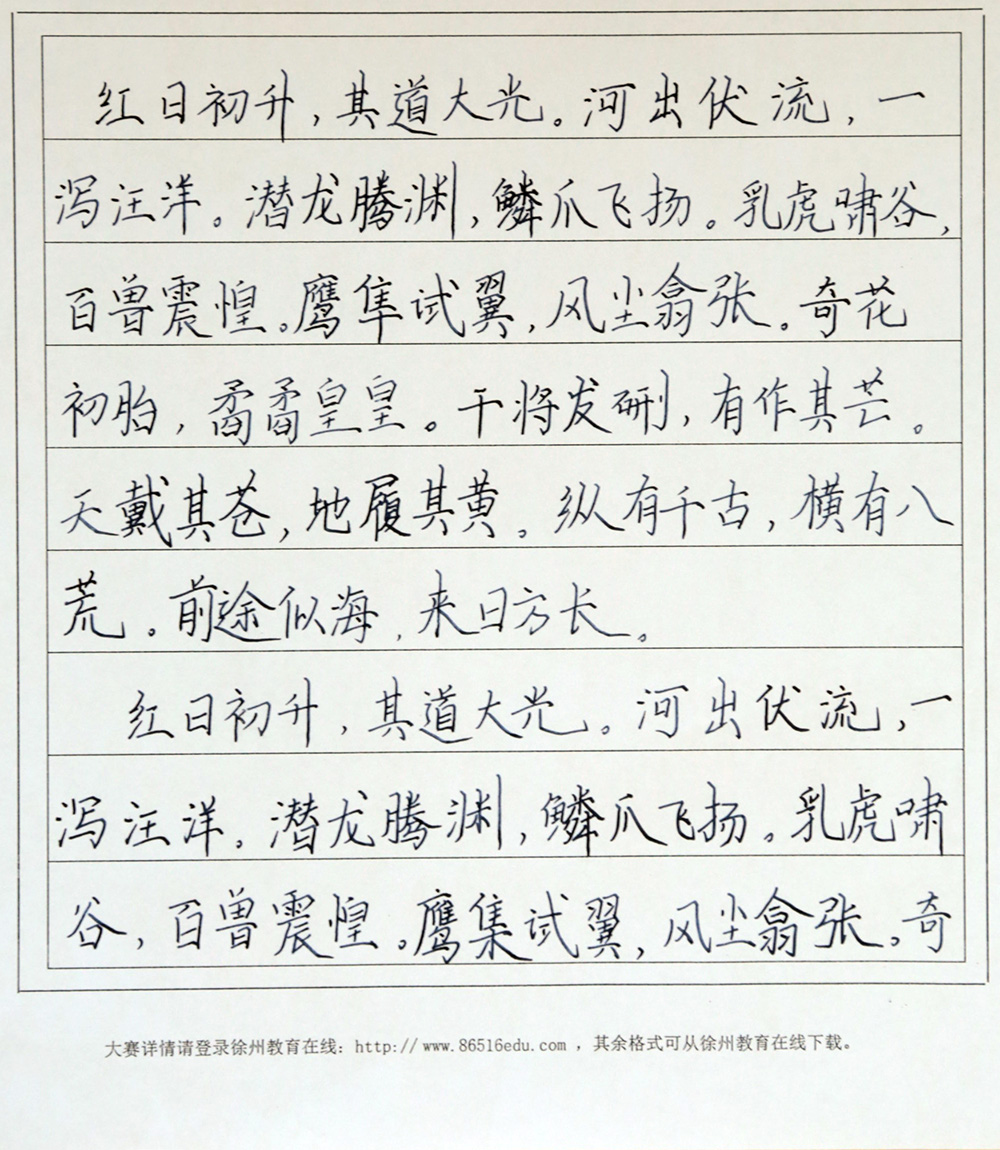 红日初升，其道大光。河出伏流，一
泻汪洋。潜龙腾渊，鳞爪飞扬。乳虎啸谷，
百兽震惶。鹰隼试翼，风尘翕张。奇花
初胎，矞矞皇皇。干将发硎，有作其芒。
天戴其苍，地履其黄。纵有千古，横有八
荒。前途似海，来日方长。
红日初升，其道大光。河出伏流，一
泻汪洋。潜龙腾渊，鳞爪飞扬。乳虎啸
谷，百兽震惶。鹰集试翼，风尘翕张。奇
大赛详情请登录徐州教育在线：http://www.86516edu.com ，其余格式可从徐州教育在线下载。